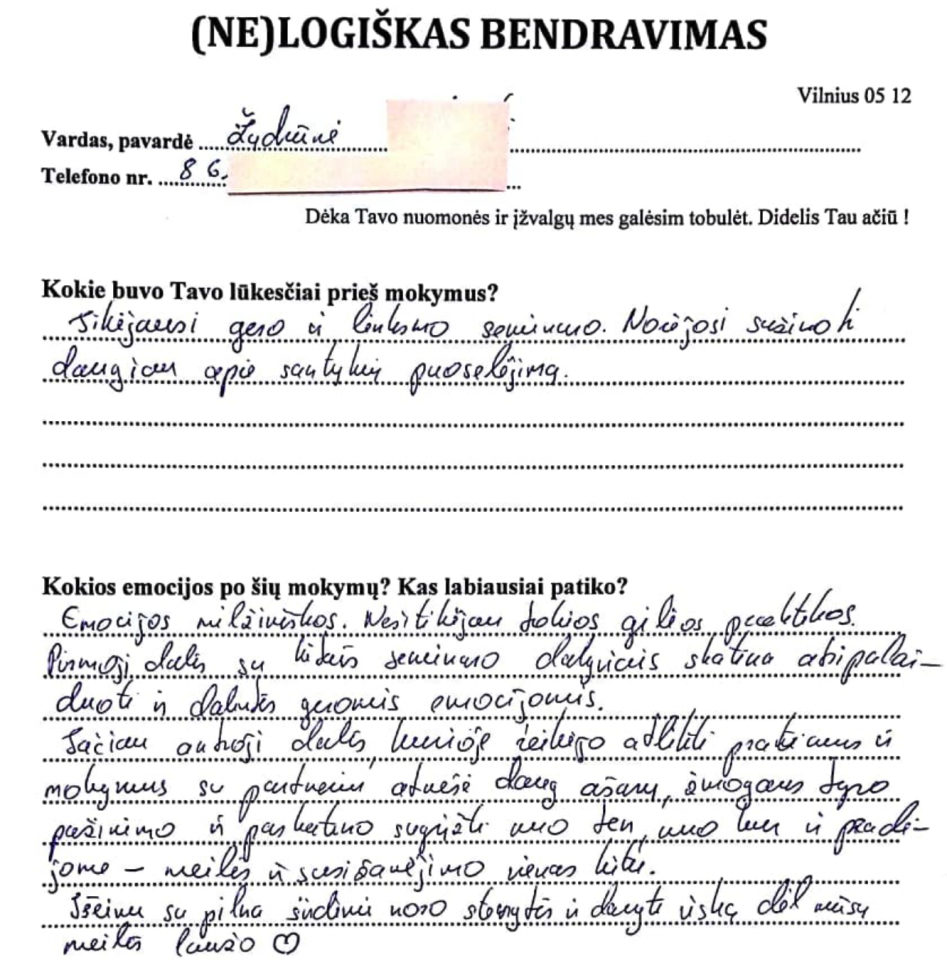 (NE)LOGIŠKAS BENDRAVIMAS
Vilnius 05 12
Vardas, pavardė Žydrūnė
Telefono nr. 8 6
Dėka Tavo nuomonės ir įžvalgų mes galėsim tobulėt. Didelis Tau ačiū !
Kokie buvo Tavo lūkesčiai prieš mokymus?
Tikėjausi gero ir linksmo seminaro. Norėjosi sužinoti
daugiau apie santykių puoselėjimą.
Kokios emocijos po šių mokymų? Kas labiausiai patiko?
Emocijos milžiniškos. Nesitikėjau tokios gilios praktikos.
Pirmoji dalis su kitais seminaro dalyviais skatino atsipalai-
duoti ir dalintis geromis emocijomis.
Tačiau antroji dalis, kurioje reikėjo atlikti pratimus ir
mokymus su partneriu atnešė daug ašarų, žmogaus tyro
pažinimo ir paskatino sugrįžti nuo ten, nuo kur ir pradė-
jome – meilės ir susižavėjimo vienas kitu.
Išeinu su pilna širdimi noro stengtis ir daryti viską dėl mūsų
meilės laužo ♡